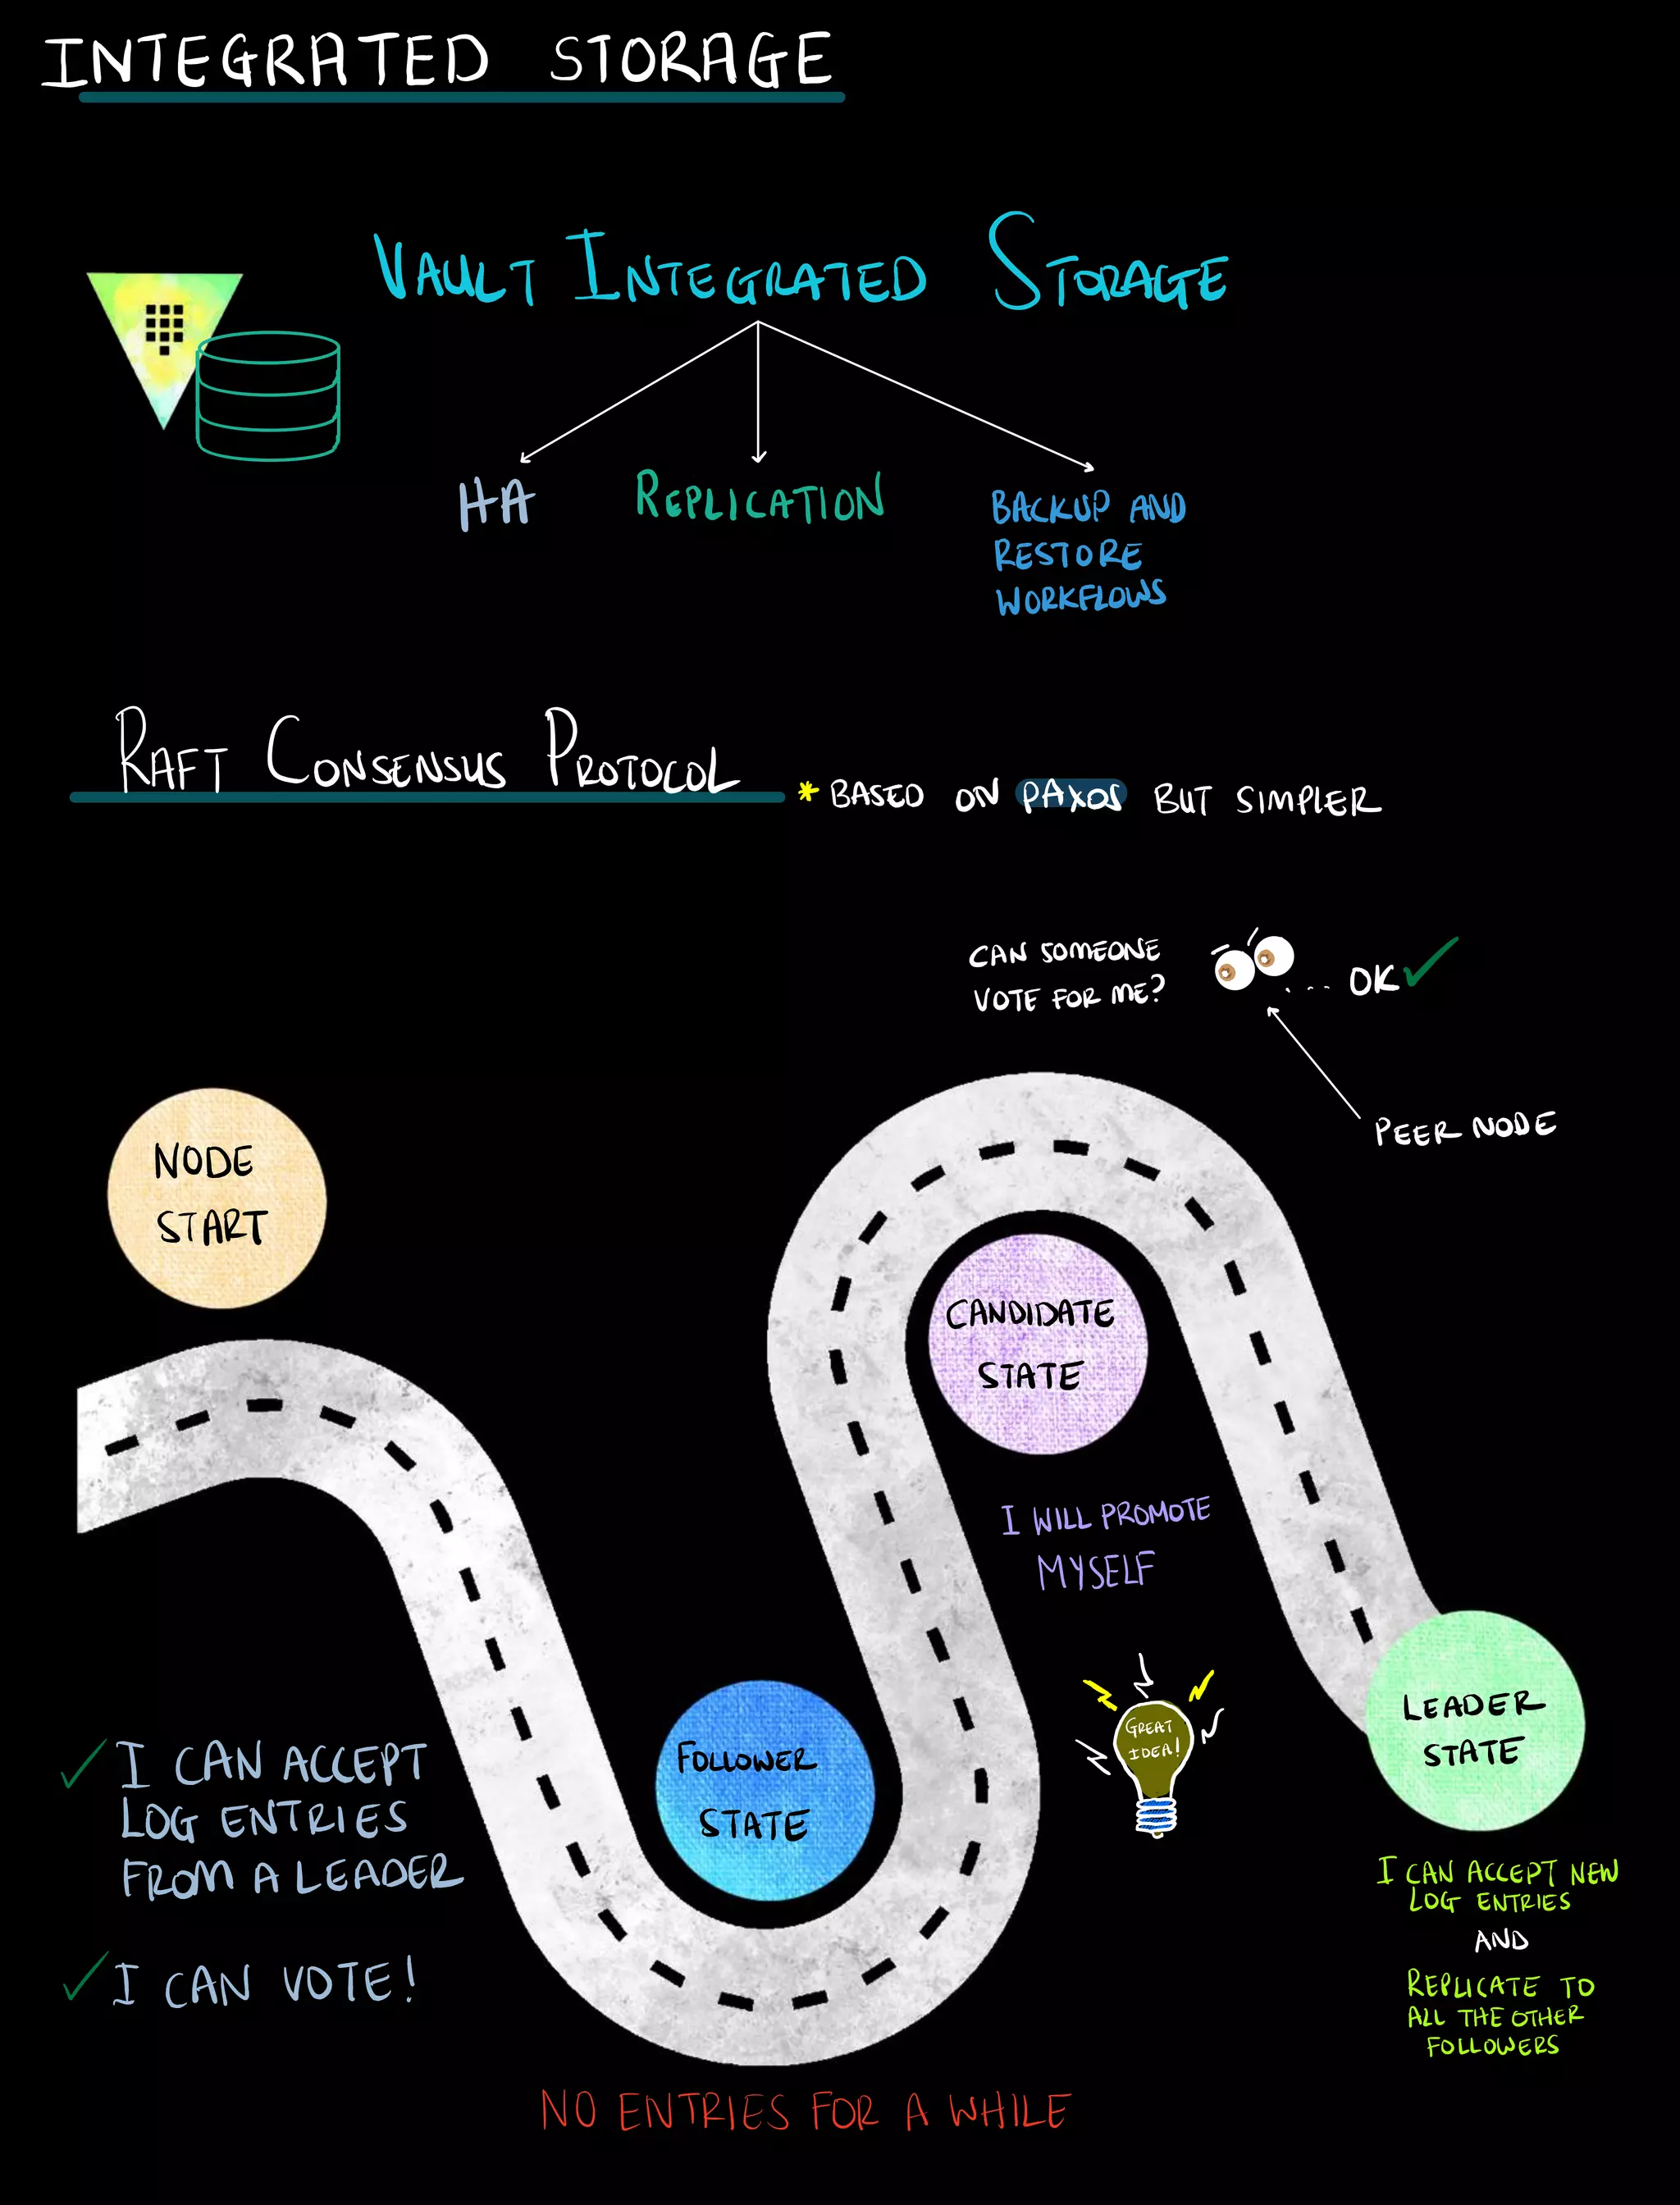 INTEGRATED STORAGE
VAULT INTEGRATED STORAGE
HA
REPLICATION
BACKUP AND
RESTORE
WORKFLOWS
RAFT CONSENSUS PROTOCOL
* BASED ON PAXOS BUT SIMPLER
CAN SOMEONE
VOTE FOR ME?
... OK
PEER NODE
NODE
START
CANDIDATE
STATE
I WILL PROMOTE
MYSELF
GREAT
IDEA!
FOLLOWER
STATE
I CAN ACCEPT
LOG ENTRIES
FROM A LEADER
I CAN VOTE!
NO ENTRIES FOR A WHILE
LEADER
STATE
I CAN ACCEPT NEW
LOG ENTRIES
AND
REPLICATE TO
ALL THE OTHER
FOLLOWERS